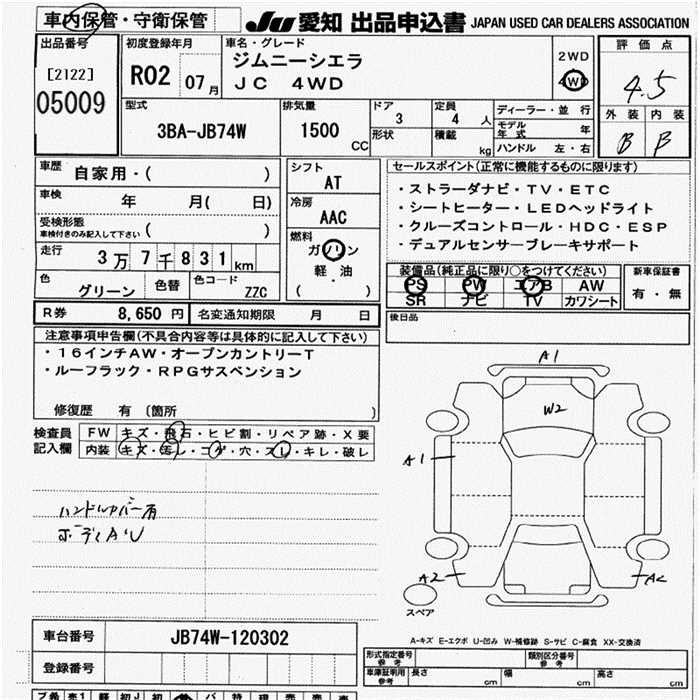 車内保管・守衛保管
JU 愛知 出品申込書 JAPAN USED CAR DEALERS ASSOCIATION
出品番号
[2122]
05009
初度登録年月
R02 07月
車名・グレード
ジムニーシエラ
JC 4WD
2WD
4WD
評価点
4.5
外装 内装
B B
型式
3BA-JB74W
排気量
1500
CC
ドア
3
形状
定員
4 人
積載
kg
ディーラー・並行
モデル年式 年
ハンドル 左・右
車歴
自家用・( )
車検
年 月( 日)
受検形態
車検付きのみ記入して下さい ( )
走行
3万7千831km
色
グリーン
色替
色コード
ZZC
シフト
AT
冷房
AAC
燃料
ガソリン
軽・油
( )
セールスポイント(正常に機能するものに限ります)
・ストラーダナビ・TV・ETC
・シートヒーター・LEDヘッドライト
・クルーズコントロール・HDC・ESP
・デュアルセンサーブレーキサポート
装備品(純正品に限り○をつけてください)
PS PW エアB AW
SR ナビ TV カワシート
新車保証書
有・無
R券 8,650円 名変通知期限 月 日
後日品
注意事項申告欄(不具合内容等は具体的に記入して下さい)
・16インチAW・オープンカントリーT
・ルーフラック・RPGサスペンション
修復歴 有 〔箇所 〕
検査員記入欄
FW キズ・飛石・ヒビ割・リペア跡・X要
内装 キズ・汚レ・コゲ・穴・スレ・キレ・破レ
ハンドルカバー有
ボディAU
A1
W2
A1
A2
スペア
A-キズ E-エクボ U-凹み W-補修跡 S-サビ C-腐食 XX-交換済
車台番号 JB74W-120302
登録番号
形式指定番号
参考
類別区分番号
参考
車庫証明用
参考
長さ cm 幅 cm 高さ cm